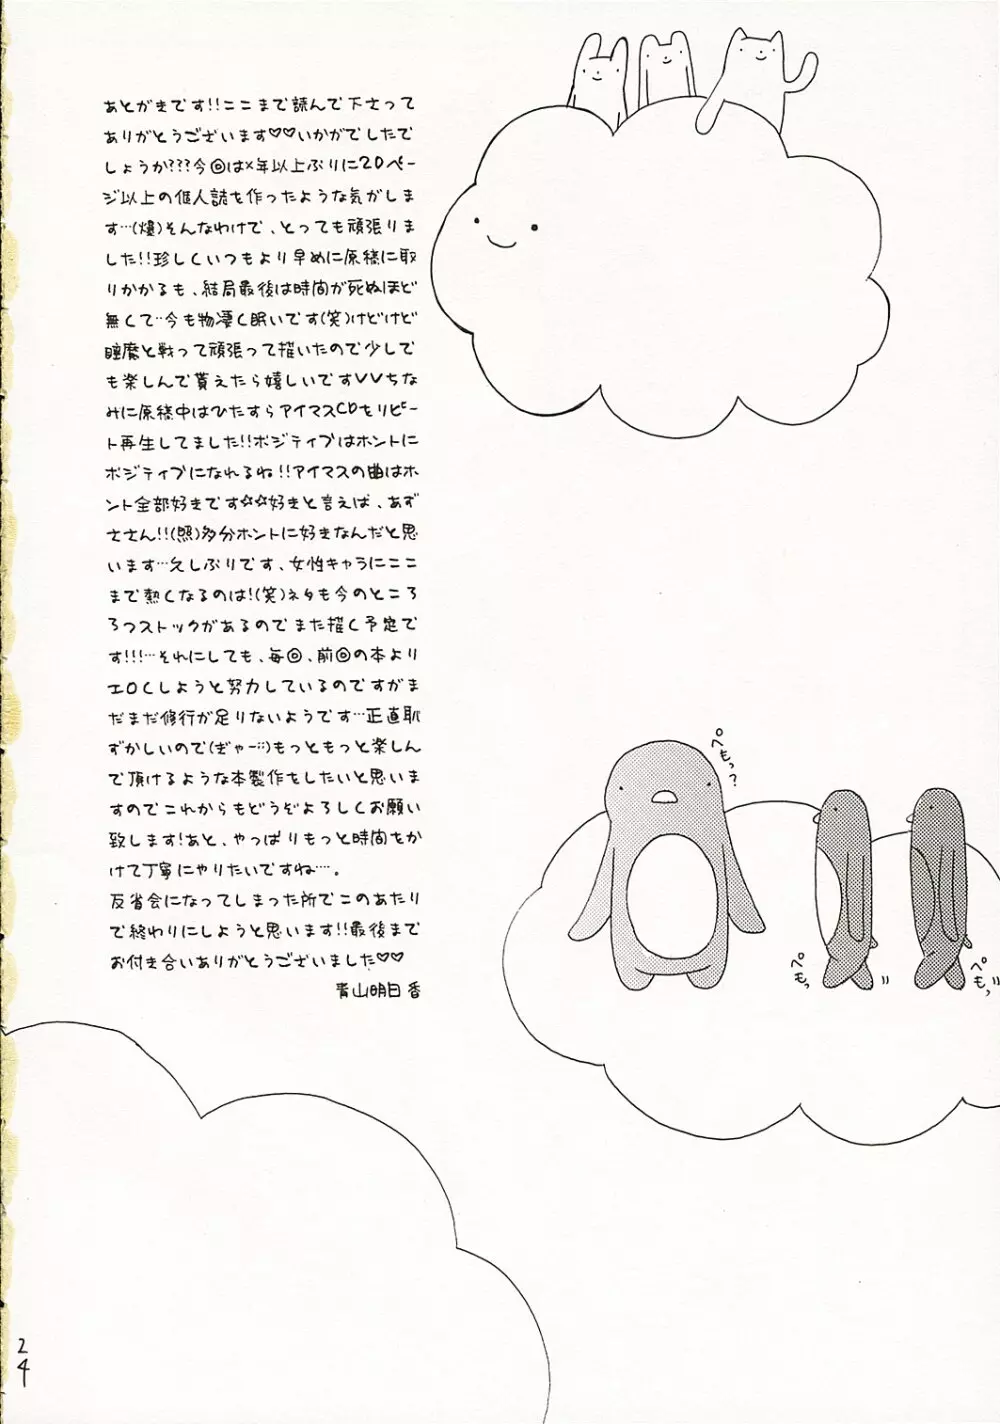 あとがきです!!ここまで読んで下さって
ありがとうございます♡♡いかがでしたで
しょうか???今回は×年以上ぶりに20ペー
ジ以上の個人誌を作ったような気がしま
す…(爆)そんなわけで、とっても頑張りま
した!!珍しくいつもより早めに原稿に取
りかかるも、結局最後は時間が死ぬほど
無くて…今も物凄く眠いです(笑)けどけど
睡魔と戦って頑張って描いたので少しで
も楽しんで貰えたら嬉しいですVVちな
みに原稿中はひたすらアイマスCDをリピー
ト再生してました!!ポジティブはホントに
ポジティブになれるね!!アイマスの曲はホ
ント全部好きです☆☆好きと言えば、あず
ささん!!(照)多分ホントに好きなんだと思
います…久しぶりです、女性キャラにここ
まで熱くなるのは!(笑)ネタも今のところ
ろつストックがあるのでまた描く予定で
す!!!…それにしても、毎回、前回の本より
エロくしようと努力しているのですがま
だまだ修行が足りないようです…正直恥
ずかしいので(ぎゃー)もっともっと楽しん
で頂けるような本製作をしたいと思いま
すのでこれからもどうぞよろしくお願い
致します!あと、やっぱりもっと時間をか
けて丁寧にやりたいですね…。
反省会になってしまった所でこのあたり
で終わりにしようと思います!!最後まで
お付き合いありがとうございました♡♡
青山明日香
ペもっ?
ペもっ
ペもっ
24